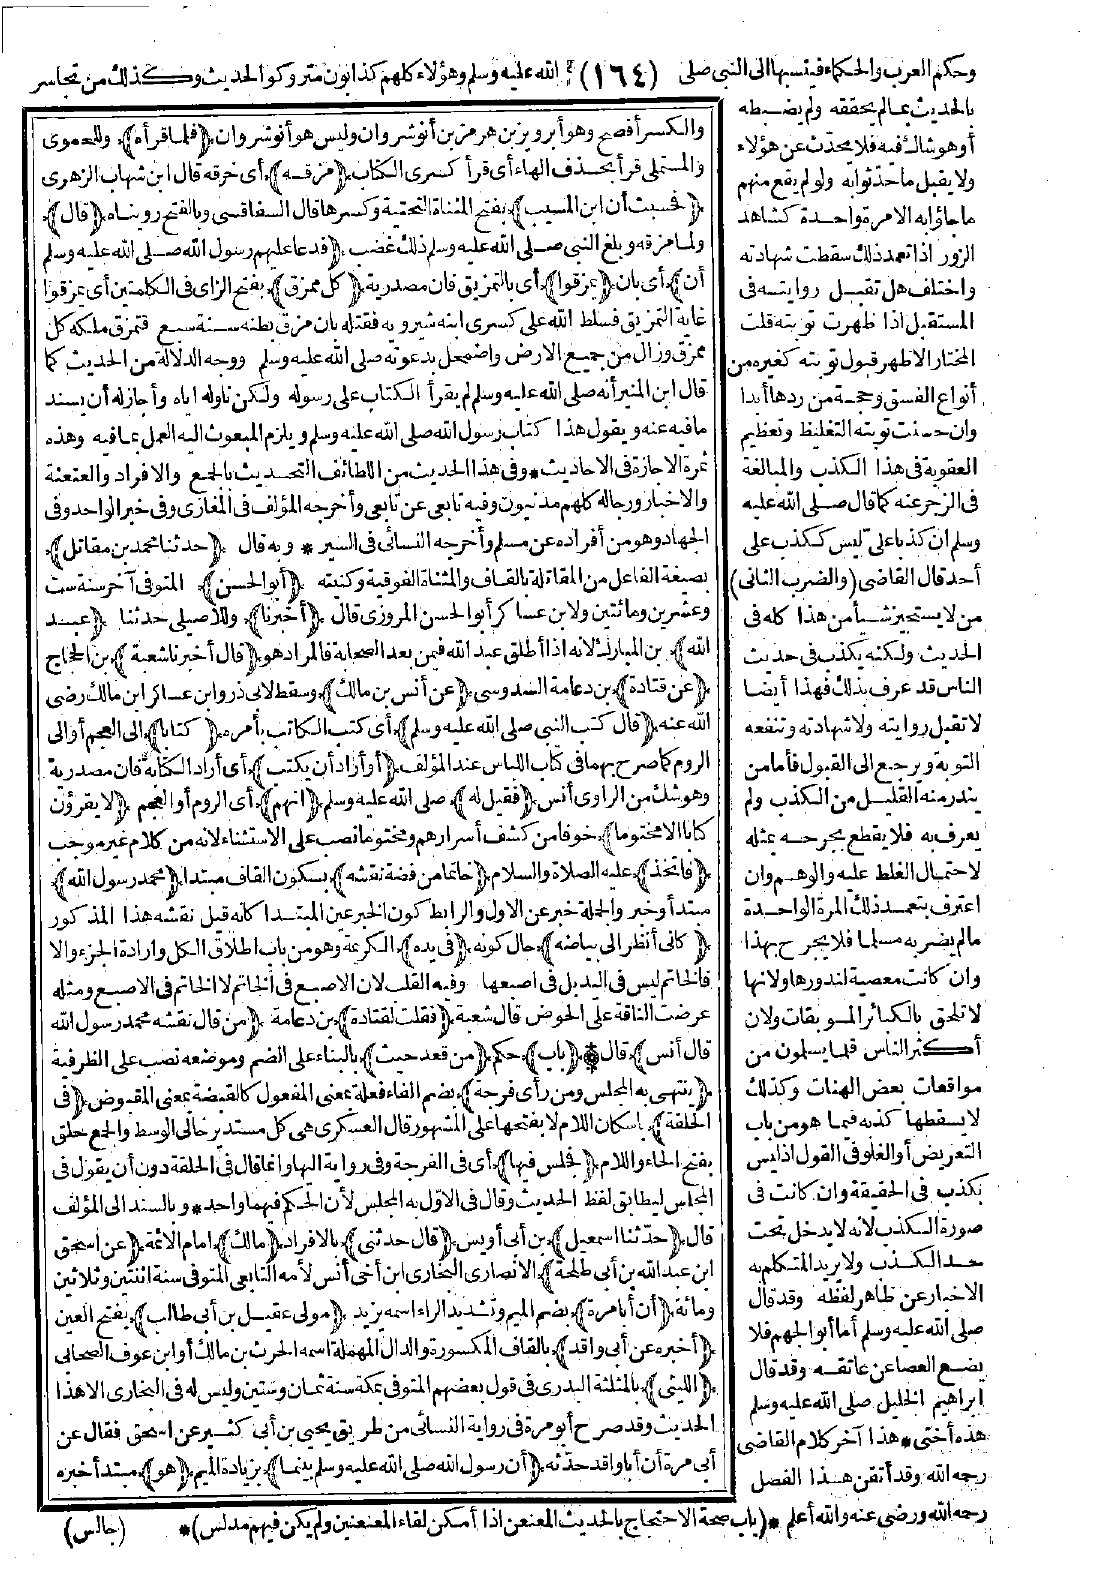 وحكم العرب والحكماء فينسبها الى النبي صلى (١٦٤) الله عليه وسلم وهؤلاء كلهم كذابون متروكوا الحديث وكذلك من تجاسر
بالحديث عالم يحققه ولم يضبطه
أو هو شاك فيه فلا يحدّث عن هؤلاء
ولا يقبل ما حدثوا به ولو لم يقع منهم
ما جاؤا به الا مرة واحدة كشاهد
الزور اذا تعمد ذلك سقطت شهادته
واختلف هل تقبل روايته فى
المستقبل اذا ظهرت توبته قلت
المختار الاظهر قبول توبته كغيره من
أنواع الفسق وحجة من ردها أبدا
وان حسنت توبته التغليظ وتعظيم
العقوبة فى هذا الكذب والمبالغة
فى الزجر عنه كما قال صلى الله عليه
وسلم ان كذبا علىّ ليس ككذب على
أحد قال القاضى (والضرب الثانى)
من لا يستجيز شيأ من هذا كله فى
الحديث ولكنه يكذب فى حديث
الناس قد عرف بذلك فهذا أيضا
لا تقبل روايته ولا شهادته وتنفعه
التوبة ويرجع الى القبول فأما من
يندر منه القليل من الكذب ولم
يعرف به فلا يقطع بجرحه بمثله
لاحتمال الغلط عليه والوهم وان
اعترف بتعمد ذلك المرة الواحدة
مالم يضر به مسلما فلا يجرح بهذا
وان كانت معصية لندورها ولانها
لا تلحق بالكبائر الموبقات ولان
أكثر الناس قلما يسلمون من
مواقعات بعض الهنات وكذلك
لا يسقطها كذبه فيما هو من باب
التعريض أو الغلو فى القول اذ ليس
بكذب فى الحقيقة وان كانت فى
صورة الكذب لانه لا يدخل تحت
حد الكذب ولا يريد المتكلم به
الاخبار عن ظاهر لفظه وقد قال
صلى الله عليه وسلم أما أبو الجهم فلا
يضع العصا عن عاتقه وقد قال
ابراهيم الخليل صلى الله عليه وسلم
هذه أختى * هذا آخر كلام القاضى
رحمه الله وقد أتقن هذا الفصل
رحمه الله ورضى عنه والله أعلم * (باب صحة الاحتجاج بالحديث المعنعن اذا أمكن لقاء المعنعنين ولم يكن فيهم مدلس) *
والكسر أفصح وهو أبرويز بن هرمز بن أنوشروان وليس هو أنوشروان ﴿فلما قرأه﴾ وللحموى
والمستملى قرأ بحذف الهاء أى قرأ كسرى الكتاب ﴿مزقه﴾ أى خرقه قال ابن شهاب الزهرى
﴿فحسبت أن ابن المسيب﴾ بفتح المثناة التحتية وكسرها قال السفاقسى وبالفتح رويناه ﴿قال﴾
ولما مزقه وبلغ النبى صلى الله عليه وسلم ذلك غضب ﴿فدعا عليهم رسول الله صلى الله عليه وسلم
أن﴾ أى بان ﴿يمزقوا﴾ أى بالتمزيق فان مصدرية ﴿كل ممزق﴾ بفتح الزاى فى الكلمتين أى يمزقوا
غاية التمزيق فسلط الله على كسرى ابنه شيرويه فقتله بان مزق بطنه سنة سبع فتمزق ملكه كل
ممزق وزال من جميع الارض واضمحل بدعوته صلى الله عليه وسلم ووجه الدلالة من الحديث كما
قال ابن المنير أنه صلى الله عليه وسلم لم يقرأ الكتاب على رسوله ولكن ناوله اياه وأجاز له أن يسند
مافيه عنه ويقول هذا كتاب رسول الله صلى الله عليه وسلم ويلزم المبعوث اليه العمل بما فيه وهذه
ثمرة الاجازة فى الاحاديث * وفى هذا الحديث من اللطائف التحديث بالجمع والافراد والعنعنة
والاخبار ورجاله كلهم مدنيون وفيه تابعى عن تابعى وأخرجه المؤلف فى المغازى وفى خبر الواحد وفى
الجهاد وهو من أفراده عن مسلم وأخرجه النسائى فى السير * وبه قال ﴿حدثنا محمد بن مقاتل﴾
بصيغة الفاعل من المقاتلة بالقاف والمثناة الفوقية وكنيته ﴿أبو الحسن﴾ المتوفى آخر سنة ست
وعشرين ومائتين ولابن عساكر أبو الحسن المروزى قال ﴿أخبرنا﴾ وللاصيلى حدثنا ﴿عبد
الله﴾ بن المبارك لانه اذا أطلق عبد الله فيمن بعد الصحابة فالمراد هو ﴿قال أخبرنا شعبة﴾ بن الحجاج
﴿عن قتادة﴾ بن دعامة السدوسى ﴿عن أنس بن مالك﴾ وسقط لابى ذر وابن عساكر ابن مالك رضى
الله عنه ﴿قال كتب النبى صلى الله عليه وسلم﴾ أى كتب الكاتب بأمره ﴿كتابا﴾ الى العجم أو الى
الروم كما صرح بهما فى كتاب اللباس عند المؤلف ﴿أو أراد أن يكتب﴾ أى أراد الكتابة فان مصدرية
وهو شك من الراوى أنس ﴿فقيل له﴾ صلى الله عليه وسلم ﴿انهم﴾ أى الروم أو العجم ﴿لا يقرؤن
كتابا الا مختوما﴾ خوفا من كشف أسرارهم ومختوما نصب على الاستثناء لانه من كلام غير موجب
﴿فاتخذ﴾ عليه الصلاة والسلام ﴿خاتما من فضة نقشه﴾ بسكون القاف مبتدا ﴿محمد رسول الله﴾
مبتدأ وخبر والجملة خبر عن الاول والرابط كون الخبر عين المبتدا كانه قيل نقشه هذا المذكور
﴿كانى أنظر الى بياضه﴾ حال كونه ﴿فى يده﴾ الكريمة وهو من باب اطلاق الكل وارادة الجزء والا
فالخاتم ليس فى اليد بل فى اصبعها وفيه القلب لان الاصبع فى الخاتم لا الخاتم فى الاصبع ومثله
عرضت الناقة على الحوض قال شعبة ﴿فقلت لقتادة﴾ بن دعامة ﴿من قال نقشه محمد رسول الله
قال أنس﴾ قال * ﴿باب﴾ حكم ﴿من قعد حيث﴾ بالبناء على الضم وموضعه نصب على الظرفية
﴿ينتهى به المجلس ومن رأى فرجة﴾ بضم الفاء فعلة بمعنى المفعول كالقبضة بمعنى المقبوض ﴿فى
الحلقة﴾ باسكان اللام لا بفتحها على المشهور قال العسكرى هى كل مستدير خالى الوسط والجمع حلق
بفتح الحاء واللام ﴿فجلس فيها﴾ أى فى الفرجة وفى رواية اليها وانما قال فى الحلقة دون أن يقول فى
المجلس ليطابق لفظ الحديث وقال فى الاول به المجلس لأن الحكم فيهما واحد * وبالسند الى المؤلف
قال ﴿حدّثنا اسمعيل﴾ بن أبى أويس ﴿قال حدثنى﴾ بالافراد ﴿مالك﴾ امام الائمة ﴿عن اسحق
ابن عبد الله بن أبى طلحة﴾ الانصارى البخارى ابن أخى أنس لأمه التابعى المتوفى سنة اثنتين وثلاثين
ومائة ﴿أن أبا مرة﴾ بضم الميم وتشديد الراء اسمه يزيد ﴿مولى عقيل بن أبى طالب﴾ بفتح العين
﴿أخبره عن أبى واقد﴾ بالقاف المكسورة والدال المهملة اسمه الحرث بن مالك أو ابن عوف الصحابى
﴿الليثى﴾ بالمثلثة البدرى فى قول بعضهم المتوفى بمكة سنة ثمان وستين وليس له فى البخارى الا هذا
الحديث وقد صرح أبو مرة فى رواية النسائى من طريق يحيى بن أبى كثير عن اسحق فقال عن
أبى مرة أن أبا واقد حدّثه ﴿أن رسول الله صلى الله عليه وسلم بينما﴾ بزيادة الميم ﴿هو﴾ مبتدأ خبره
(جالس)